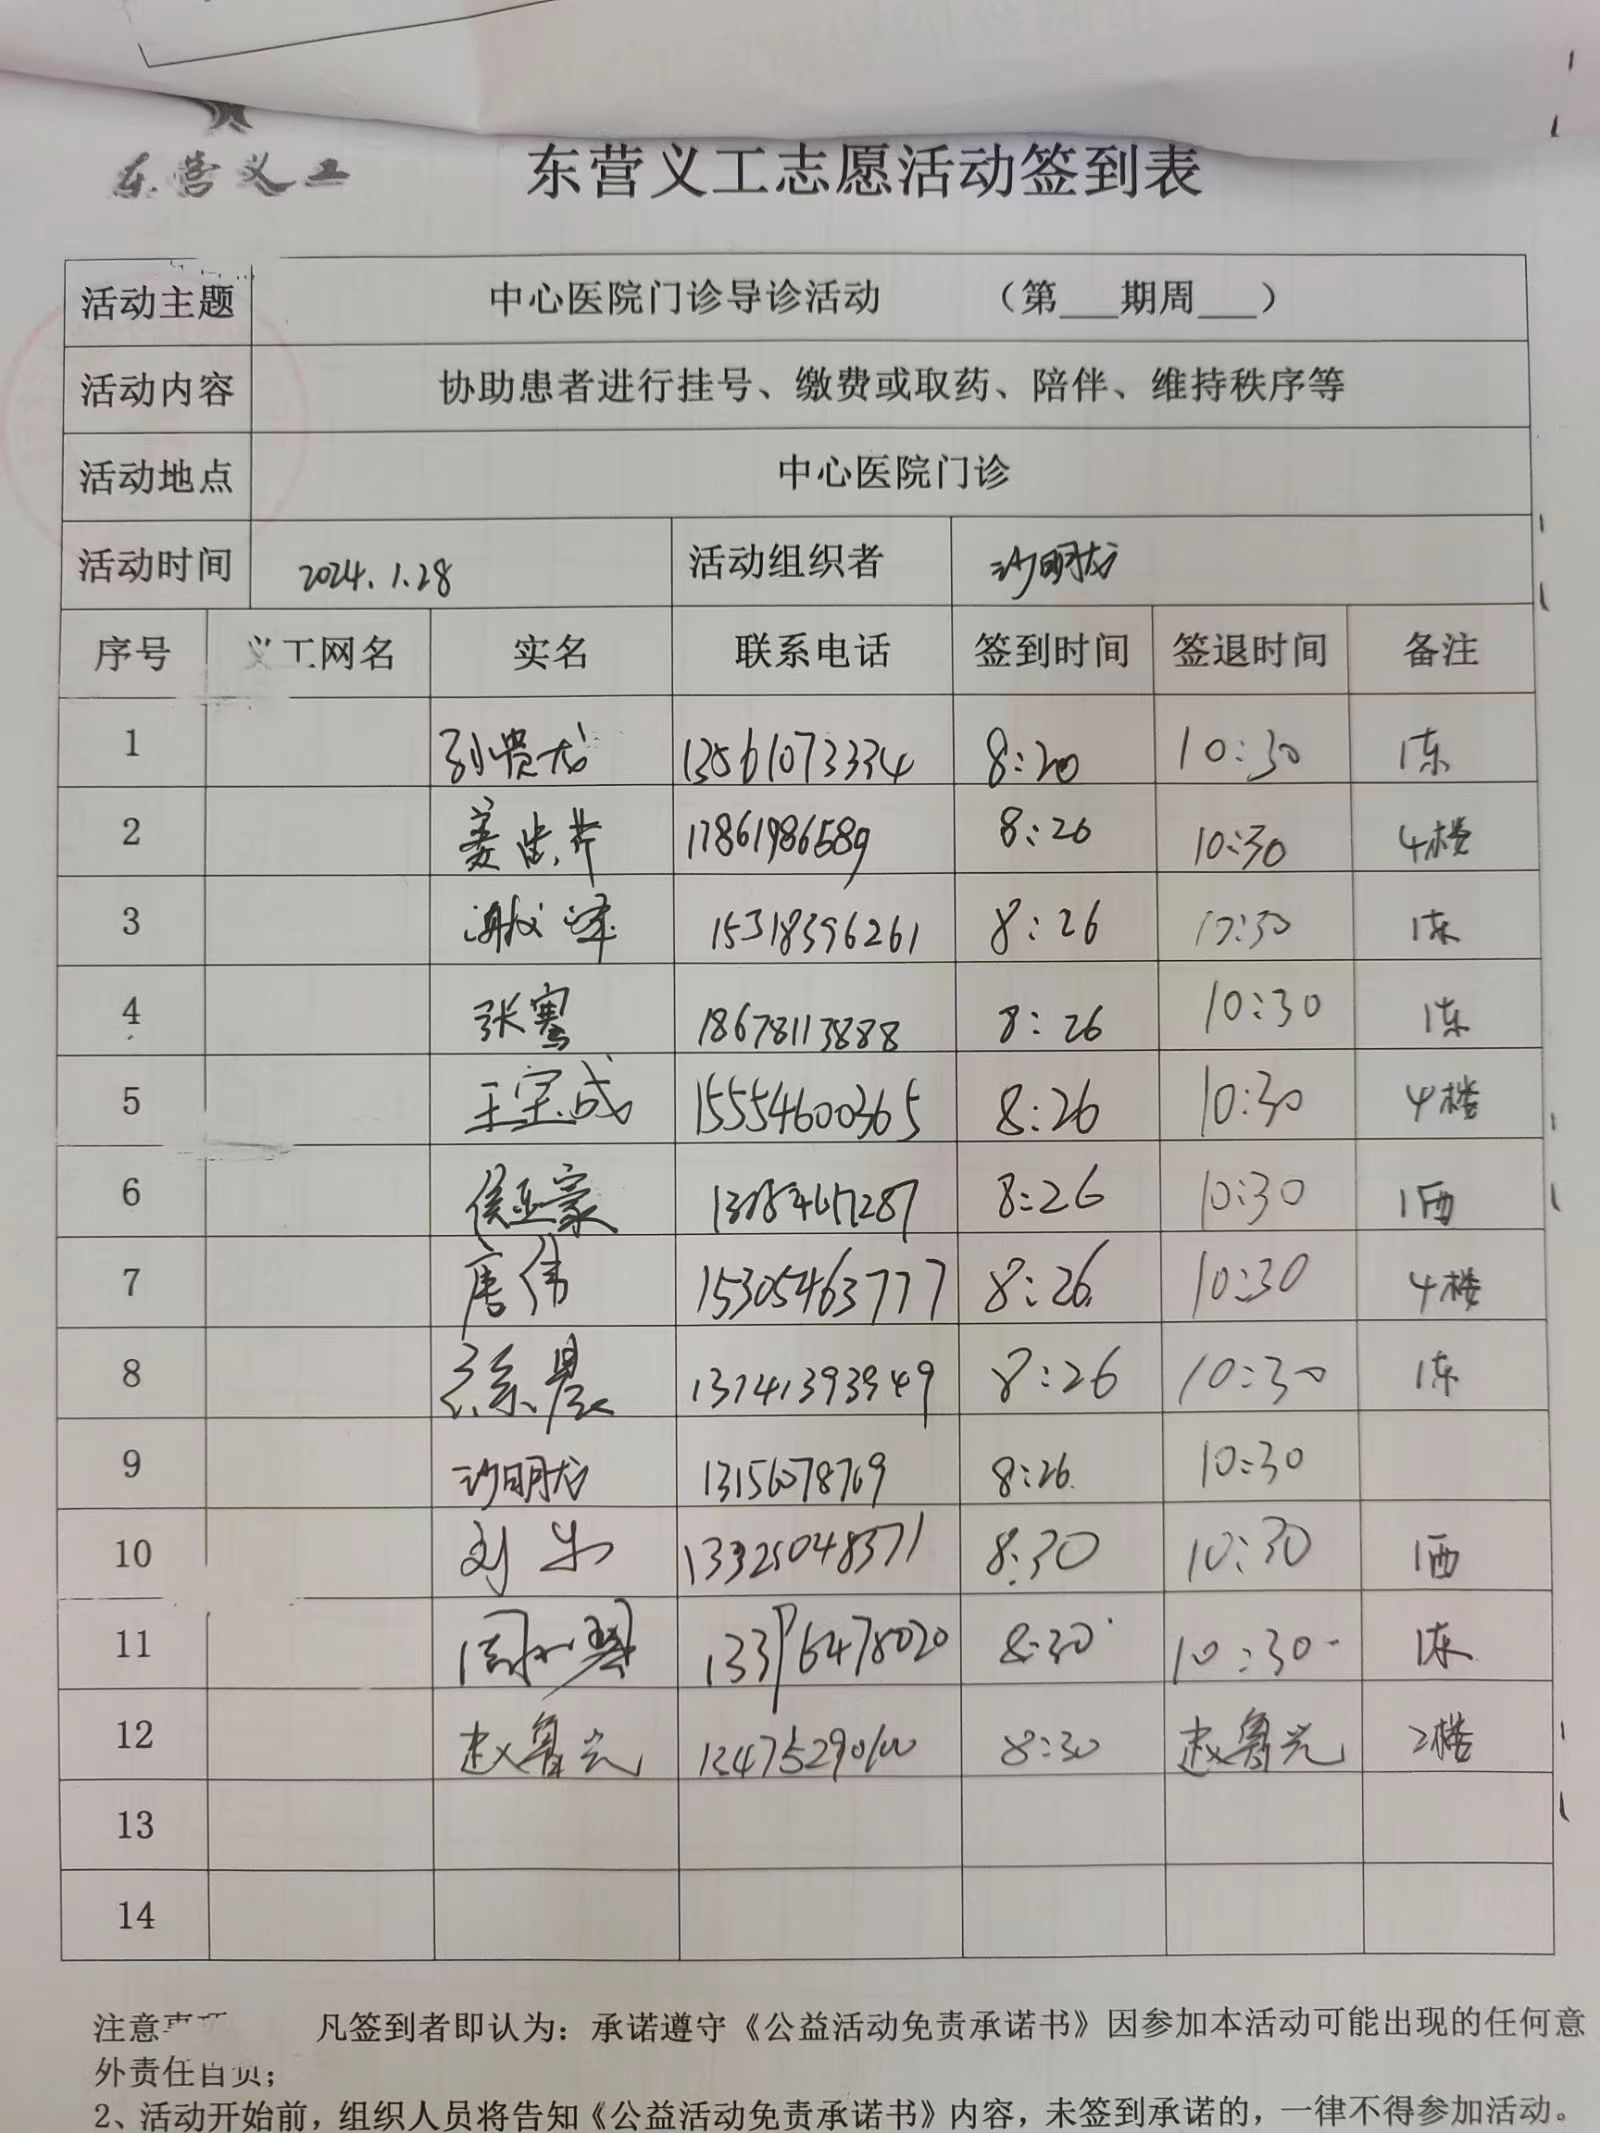 东营义工
东营义工志愿活动签到表
活动主题 中心医院门诊导诊活动 （第___期周___）
活动内容 协助患者进行挂号、缴费或取药、陪伴、维持秩序等
活动地点 中心医院门诊
活动时间 2024.1.28 活动组织者 沙明龙
序号 义工网名 实名 联系电话 签到时间 签退时间 备注
1 孙贵龙 13561073334 8:20 10:30 1东
2 姜 17861986589 8:26 10:30 4楼
3 15318396261 8:26 10:30 1东
4 张骞 18678113888 8:26 10:30 1东
5 王宝成 15554600365 8:26 10:30 4楼
6 侯亚豪 8:26 10:30 1西
7 唐伟 15305463777 8:26 10:30 4楼
8 徐晨 8:26 10:30 1东
9 沙明龙 13156078769 8:26 10:30
10 刘乐 8:30 10:30 1西
11 周 8:30 10:30 1东
12 赵鲁光 8:30 赵鲁光 2楼
13
14
注意事项 凡签到者即认为：承诺遵守《公益活动免责承诺书》因参加本活动可能出现的任何意
外责任自负；
2、活动开始前，组织人员将告知《公益活动免责承诺书》内容，未签到承诺的，一律不得参加活动。